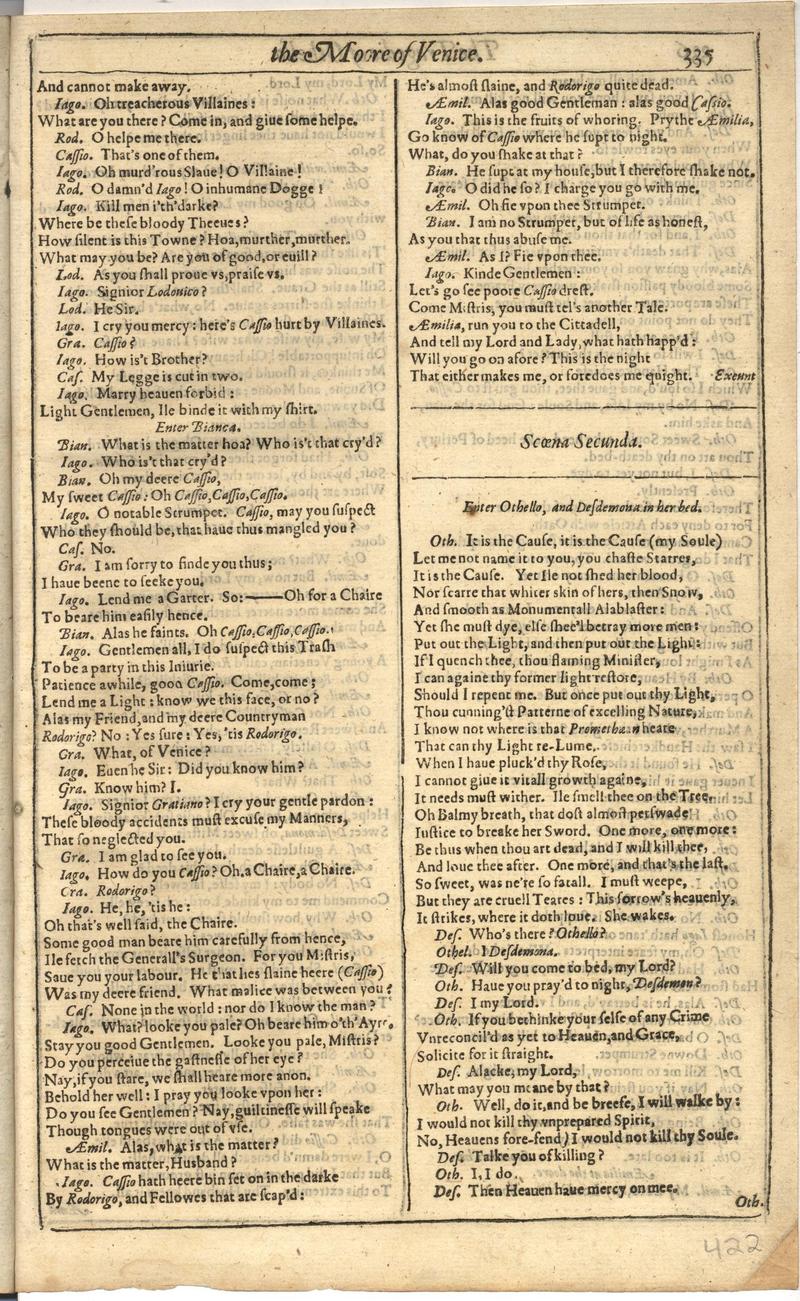 the Moore of Venice. 335
And cannot make away.
Iago. Oh treacherous Villaines:
What are you there? Come in, and giue some helpe.
Rod. O helpe me there.
Cassio. That's one of them.
Iago. Oh murd'rous Slaue! O Villaine!
Rod. O damn'd Iago! O inhumane Dogge!
Iago. Kill men i'th'darke?
Where be these bloody Theeues?
How silent is this Towne? Hoa, murther, murther.
What may you be? Are you of good, or euill?
Lod. As you shall proue vs, praise vs.
Iago. Signior Lodouico?
Lod. He Sir.
Iago. I cry you mercy: here's Cassio hurt by Villaines.
Gra. Cassio?
Iago. How is't Brother?
Cas. My Legge is cut in two.
Iago. Marry heauen forbid:
Light Gentlemen, Ile binde it with my shirt.
Enter Bianca.
Bian. What is the matter hoa? Who is't that cry'd?
Iago. Who is't that cry'd?
Bian. Oh my deere Cassio,
My sweet Cassio: Oh Cassio, Cassio, Cassio.
Iago. O notable Strumpet. Cassio, may you suspect
Who they should be, that haue thus mangled you?
Cas. No.
Gra. I am sorry to finde you thus;
I haue beene to seeke you.
Iago. Lend me a Garter. So:——Oh for a Chaire
To beare him easily hence.
Bian. Alas he faints. Oh Cassio, Cassio, Cassio.
Iago. Gentlemen all, I do suspect this Trash
To be a party in this Iniurie.
Patience awhile, good Cassio. Come, come;
Lend me a Light: know we this face, or no?
Alas my Friend, and my deere Countryman
Rodorigo? No: Yes sure: Yes, 'tis Rodorigo.
Gra. What, of Venice?
Iago. Euen he Sir: Did you know him?
Gra. Know him? I.
Iago. Signior Gratiano? I cry your gentle pardon:
These bloody accidents must excuse my Manners,
That so neglected you.
Gra. I am glad to see you.
Iago. How do you Cassio? Oh, a Chaire, a Chaire.
Gra. Rodorigo?
Iago. He, he, 'tis he:
Oh that's well said, the Chaire.
Some good man beare him carefully from hence,
Ile fetch the Generall's Surgeon. For you Mistris,
Saue you your labour. He that lies slaine heere (Cassio)
Was my deere friend. What malice was between you?
Cas. None in the world: nor do I know the man?
Iago. What? looke you pale? Oh beare him o'th'Ayre.
Stay you good Gentlemen. Looke you pale, Mistris?
Do you perceiue the gastnesse of her eye?
Nay, if you stare, we shall heare more anon.
Behold her well: I pray you looke vpon her:
Do you see Gentlemen? Nay, guiltinesse will speake
Though tongues were out of vse.
Æmil. Alas, what is the matter?
What is the matter, Husband?
Iago. Cassio hath heere bin set on in the darke
By Rodorigo, and Fellowes that are scap'd:
He's almost slaine, and Rodorigo quite dead.
Æmil. Alas good Gentleman: alas good Cassio.
Iago. This is the fruits of whoring. Prythe Æmilia,
Go know of Cassio where he supt to night.
What, do you shake at that?
Bian. He supt at my house, but I therefore shake not.
Iago. O did he so? I charge you go with me.
Æmil. Oh fie vpon thee Strumpet.
Bian. I am no Strumpet, but of life as honest,
As you that thus abuse me.
Æmil. As I? Fie vpon thee.
Iago. Kinde Gentlemen:
Let's go see poore Cassio drest.
Come Mistris, you must tel's another Tale.
Æmilia, run you to the Cittadell,
And tell my Lord and Lady, what hath happ'd:
Will you go on afore? This is the night
That either makes me, or foredoes me quight. Exeunt
Scœna Secunda.
Enter Othello, and Desdemona in her bed.
Oth. It is the Cause, it is the Cause (my Soule)
Let me not name it to you, you chaste Starres,
It is the Cause. Yet Ile not shed her blood,
Nor scarre that whiter skin of hers, then Snow,
And smooth as Monumentall Alablaster:
Yet she must dye, else shee'l betray more men:
Put out the Light, and then put out the Light:
If I quench thee, thou flaming Minister,
I can againe thy former light restore,
Should I repent me. But once put out thy Light,
Thou cunning'st Patterne of excelling Nature,
I know not where is that Promethæan heate
That can thy Light re-Lume.
When I haue pluck'd thy Rose,
I cannot giue it vitall growth againe,
It needs must wither. Ile smell thee on the Tree.
Oh Balmy breath, that dost almost perswade
Iustice to breake her Sword. One more, one more:
Be thus when thou art dead, and I will kill thee,
And loue thee after. One more, and that's the last.
So sweet, was ne're so fatall. I must weepe,
But they are cruell Teares: This sorrow's heauenly,
It strikes, where it doth loue. She wakes.
Des. Who's there? Othello?
Othel. I Desdemona.
Des. Will you come to bed, my Lord?
Oth. Haue you pray'd to night, Desdemon?
Des. I my Lord.
Oth. If you bethinke your selfe of any Crime
Vnreconcil'd as yet to Heauen, and Grace,
Solicite for it straight.
Des. Alacke, my Lord,
What may you meane by that?
Oth. Well, do it, and be breefe, I will walke by:
I would not kill thy vnprepared Spirit,
No, Heauens fore-fend) I would not kill thy Soule.
Des. Talke you of killing?
Oth. I, I do.
Des. Then Heauen haue mercy on mee.
Oth.
422